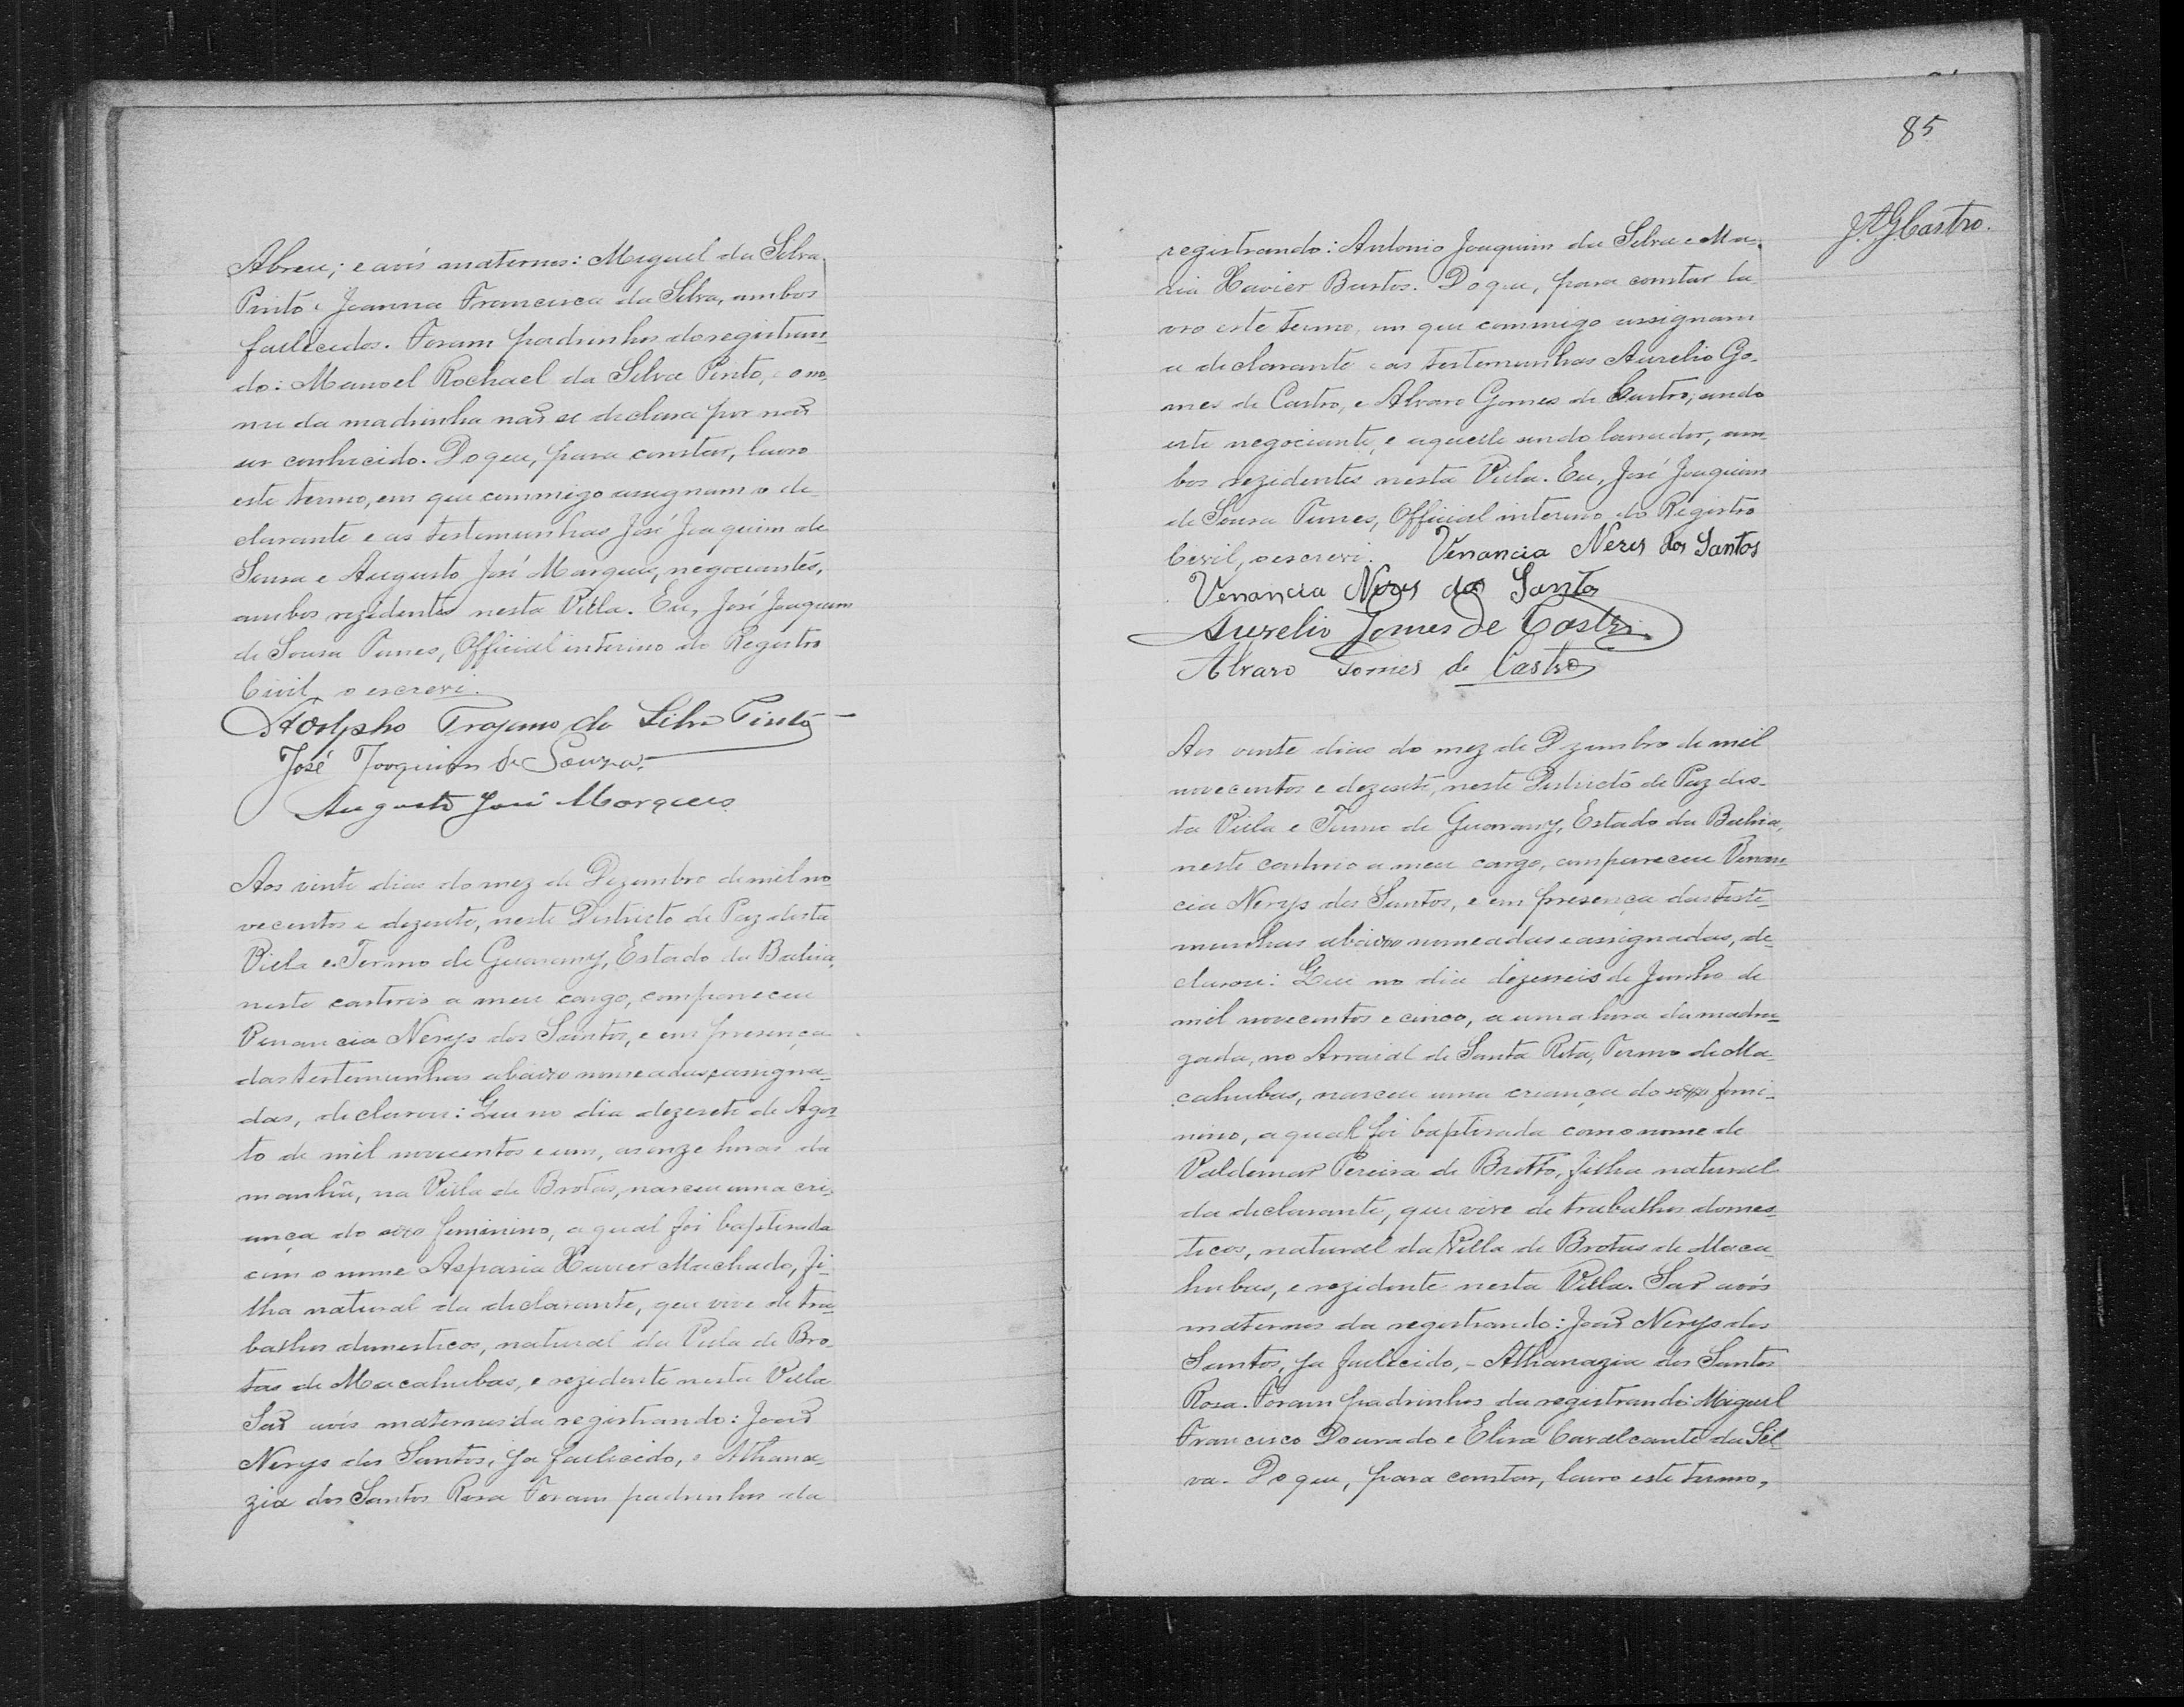 Abreu; e avós maternos: Miguel da Silva
Pinto e Joanna Francisca da Silva, ambos
fallecidos. Foram padrinhos do registran-
do: Manoel Rochael da Silva Pinto, e o no-
me da madrinha não se declara por não
ser conhecido. Do que, para constar, lavro
este termo, em que commigo assignam o de-
clarante e as testemunhas José Joaquim de
Sousa e Augusto José Marques, negociantes,
ambos rezidentes nesta Villa. Eu, José Joaquim
de Sousa Tunes, Official interino do Registro
Civil, o escrevi.
Adolpho Trajano da Silva Pinto
José Joaquim de Souza
Augusto José Marques
Aos vinte dias do mez de Dezembro de mil no-
vecentos e dezesete, neste Districto de Paz desta
Villa e Termo de Guarany, Estado da Bahia,
neste cartorio a meu cargo, compareceu
Venancia Nerys dos Santos, e em presença
das testemunhas abaixo nomeadas e assigna-
das, declarou: Que no dia dezesete de Agos-
to de mil novecentos e um, as onze horas da
manhã, na Villa de Brotas, nasceu uma cri-
ança do sexo feminino, a qual foi baptisada
com o nome Aspasia Xavier Machado, fi-
lha natural da declarante, que vive de tra-
balhos domesticos, natural da Villa de Bro-
tas de Macahubas, e rezidente nesta Villa.
São avós maternos da registrando: João
Nerys dos Santos, ja fallecido, e Athana-
zia dos Santos Rosa Foram padrinhos da
85
J. A. G. Castro.
registrando: Antonio Joaquim da Silva e Ma-
ria Xavier Bastos. Do que, para constar la-
vro este termo, em que commigo assignam
a declarante e as testemunhas Aurelio Go-
mes de Castro, e Alvaro Gomes de Castro, sendo
este negociante, e aquelle sendo lavrador, am-
bos rezidentes nesta Villa. Eu, José Joaquim
de Sousa Tunes, Official interino do Registro
Civil, o escrevi. Venancia Neres dos Santos
Venancia Neres dos Santos
Aurelio Gomes de Castro
Alvaro Gomes de Castro
Aos vinte dias do mez de Dezembro de mil
novecentos e dezesete, neste Districto de Paz des-
ta Villa e Termo de Guarany, Estado da Bahia,
neste cartorio a meu cargo, compareceu Venan-
cia Nerys dos Santos, e em presença das teste-
munhas abaixo nomeadas e assignadas, de-
clarou: Que no dia dezesseis de Junho de
mil novecentos e cinco, a uma hora da madru-
gada, no Arraial de Santa Rita, Termo de Ma-
cahubas, nasceu uma criança do sexo femi-
nino, a qual foi baptisada com o nome de
Valdemar Pereira de Britto, filha natural
da declarante, que vive de trabalhos domes-
ticos, natural da Villa de Brotas de Maca-
hubas, e rezidente nesta Villa. São avós
maternos da registrando: João Nerys dos
Santos, ja fallecido, - Athanazia dos Santos
Rosa. Foram padrinhos da registrando: Miguel
Francisco Dourado e Elisa Cavalcante da Sil
va. Do que, para constar, lavro este termo,